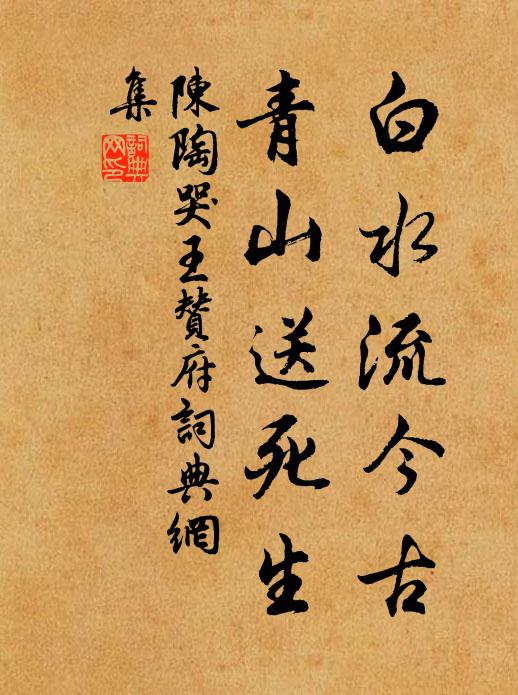 白水流今古
青山送死生
陳陶哭王贊府詞典網
集
詞典
网印